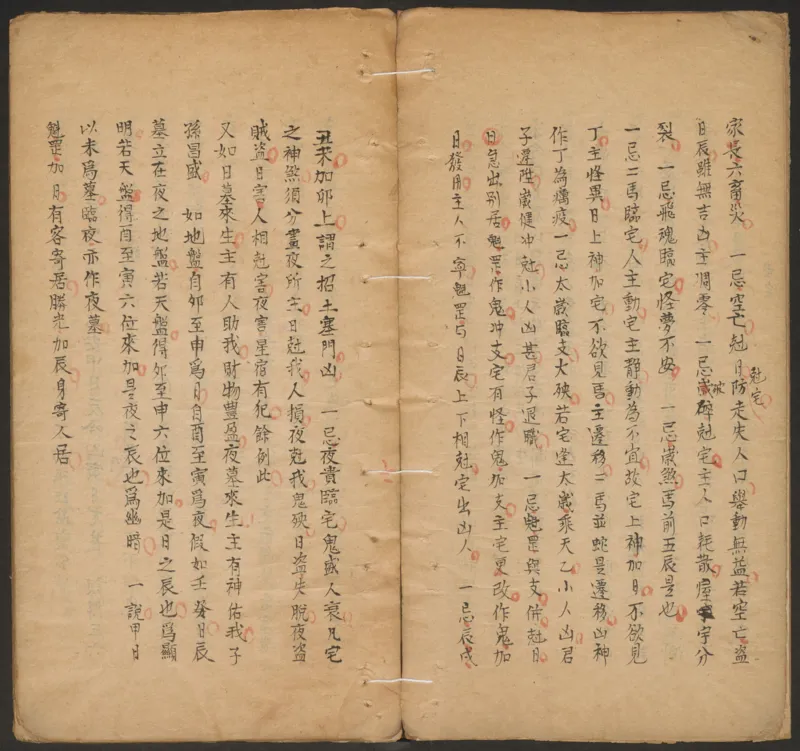 家長六畜災 一忌空亡尅日防走失人口舉動無益若空亡盜
尅宅
日辰雖無吉凶主凋零 一忌歲碎尅宅主人口耗散屋宇分
破
裂 一忌飛魂臨宅怪夢不安 一忌歲煞馬前五辰是也
一忌二馬臨宅人主動宅主靜動為不宜故宅上神加日不欲見
丁主怪異日上神加宅不欲見馬主遷移二馬並蛇是遷移凶神
作丁為瘟疫一忌太歲臨支大殃若宅逢太歲乘天乙小人凶君
子遷陞歲健冲尅小人凶甚君子退職 一忌魁罡與支併尅日
日急出別居魁罡作鬼冲支宅有怪作鬼加支主宅更改作鬼加
日發用主人不寧魁罡與日辰上下相尅定出凶人 一忌辰戌
丑未加卯上謂之招土塞門凶 一忌夜貴臨宅鬼或人衰凡宅
之神煞須分晝夜所主日尅我人損夜尅我鬼殃日盜失脫夜盜
賊盜日害人相尅害夜害星宿有犯餘倣此
又如日墓來生主有人助我財物豐盈夜墓來生主有神佑我子
孫昌盛 如地盤自卯至申為日自酉至寅為夜假如壬癸日辰
墓立在夜之地盤若天盤得卯至申六位來加是日之辰也為顯
明若天盤得酉至寅六位來加是夜之辰也為幽暗 一說甲日
以未為墓臨夜亦作夜墓
魁罡加日有客寄居勝光加辰身寄人居